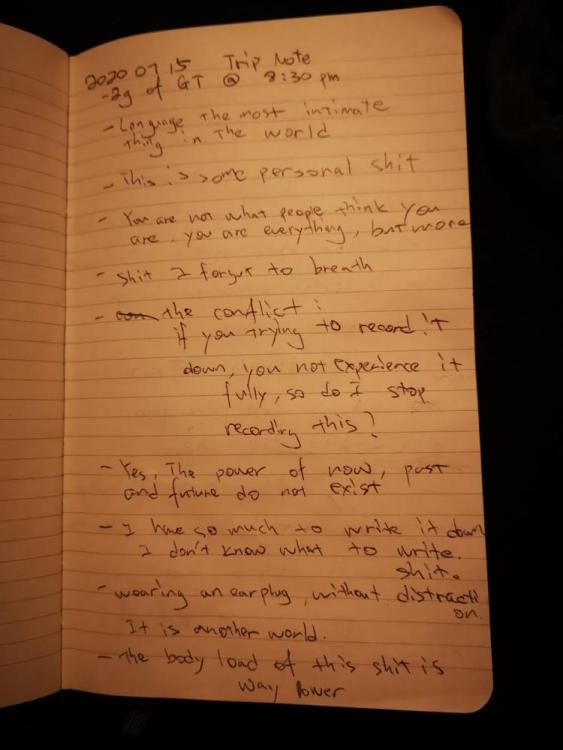 2020 07 15 Trip Note
-2g of GT @ 8:30 pm
- Language the most intimate
thing in the world
- This is some personal shit
- You are not what people think you
are, you are everything, but more
- shit I forgot to breath
- the conflict :
if you trying to record it
down, you not experience it
fully, so do I stop
recording this?
- Yes, The power of now, past
and future do not exist
- I have so much to write it down
I don't know what to write.
shit.
- wearing an earplug, without distracti
on
It is another world.
- the body load of this shit is
way lower